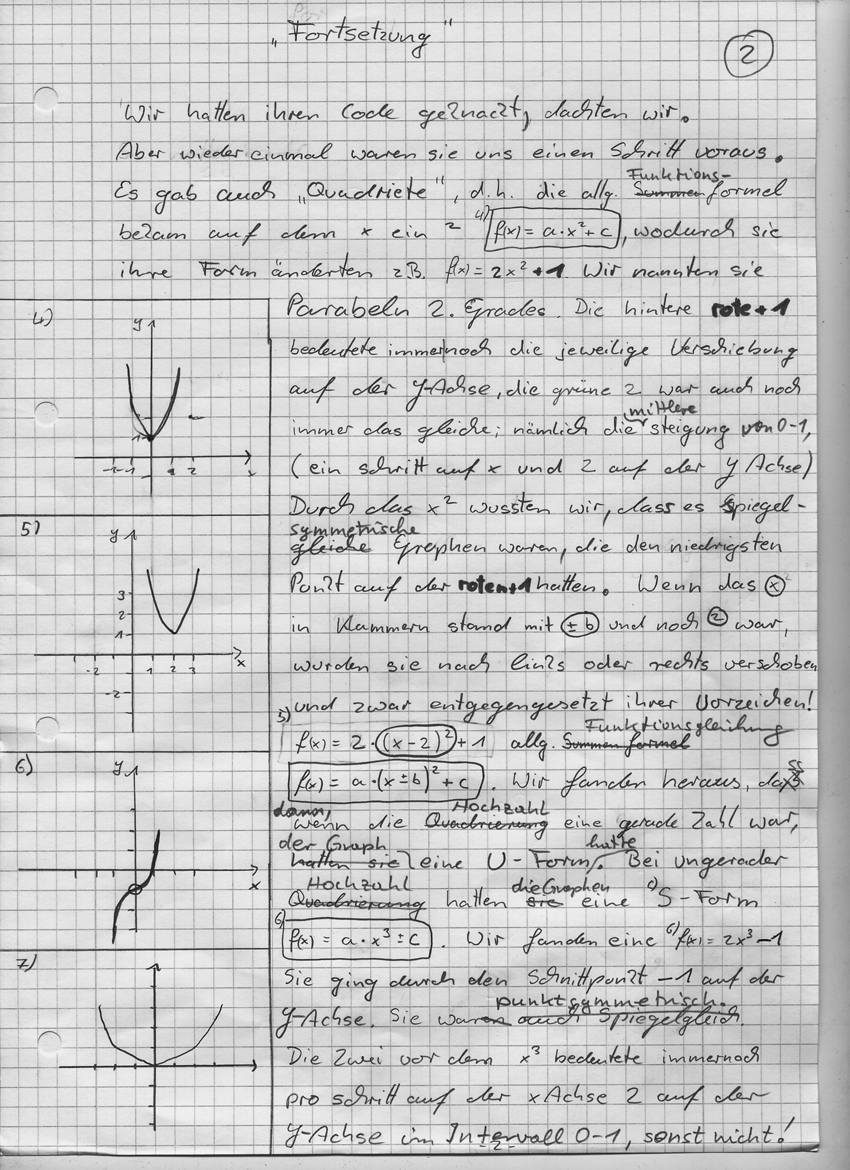 „Fortsetzung“
2
Wir hatten ihren Code geknackt, dachten wir.
Aber wieder einmal waren sie uns einen Schritt voraus.
Es gab auch „Quadriete“, d.h. die allg. Funktions-formel
bekam auf dem x ein ² 4) f(x) = a·x²+c, wodurch sie
ihre Form änderten z.B. f(x) = 2x²+1. Wir nannten sie
Parabeln 2. Grades. Die hintere rote+1
bedeutete immernoch die jeweilige Verschiebung
auf der Y-Achse, die grüne 2 war auch noch
immer das gleiche; nämlich die mittlere steigung von 0-1,
(ein schritt auf x und 2 auf der Y Achse)
Durch das x² wussten wir, dass es spiegel-
symmetrische
gleiche Grephen waren, die den niedrigsten
Punkt auf der roten+1 hatten. Wenn das x
in Klammern stand mit ±b und noch 2 war,
wurden sie nach links oder rechts verschoben
und zwar entgegengesetzt ihrer Vorzeichen!
5) f(x) = 2·((x-2)²)+1 allg. Summenformel Funktionsgleichung
f(x) = a·(x±b)²+c. Wir fanden heraus, dass
dann, wenn die Quadrierung Hochzahl eine gerade Zahl war,
der Graph
hatten sie eine U-Form hatte. Bei ungerader
Hochzahl
Quadrierung hatten sie die Graphen eine S-Form
6) f(x) = a·x³±c. Wir fanden eine 6) f(x) = 2x³-1
Sie ging durch den Schnittpunkt -1 auf der
punktsymmetrisch.
Y-Achse. Sie waren auch Spiegelgleich.
Die Zwei vor dem x³ bedeutete immernoch
pro schritt auf der xAchse 2 auf der
Y-Achse im Intervall 0-1, sonst nicht!
4)
y
1
-1 -1 2
x
5)
y 1
3
2
1
-2 1 2 3 x
-2
6)
y 1
x
7)
-2-